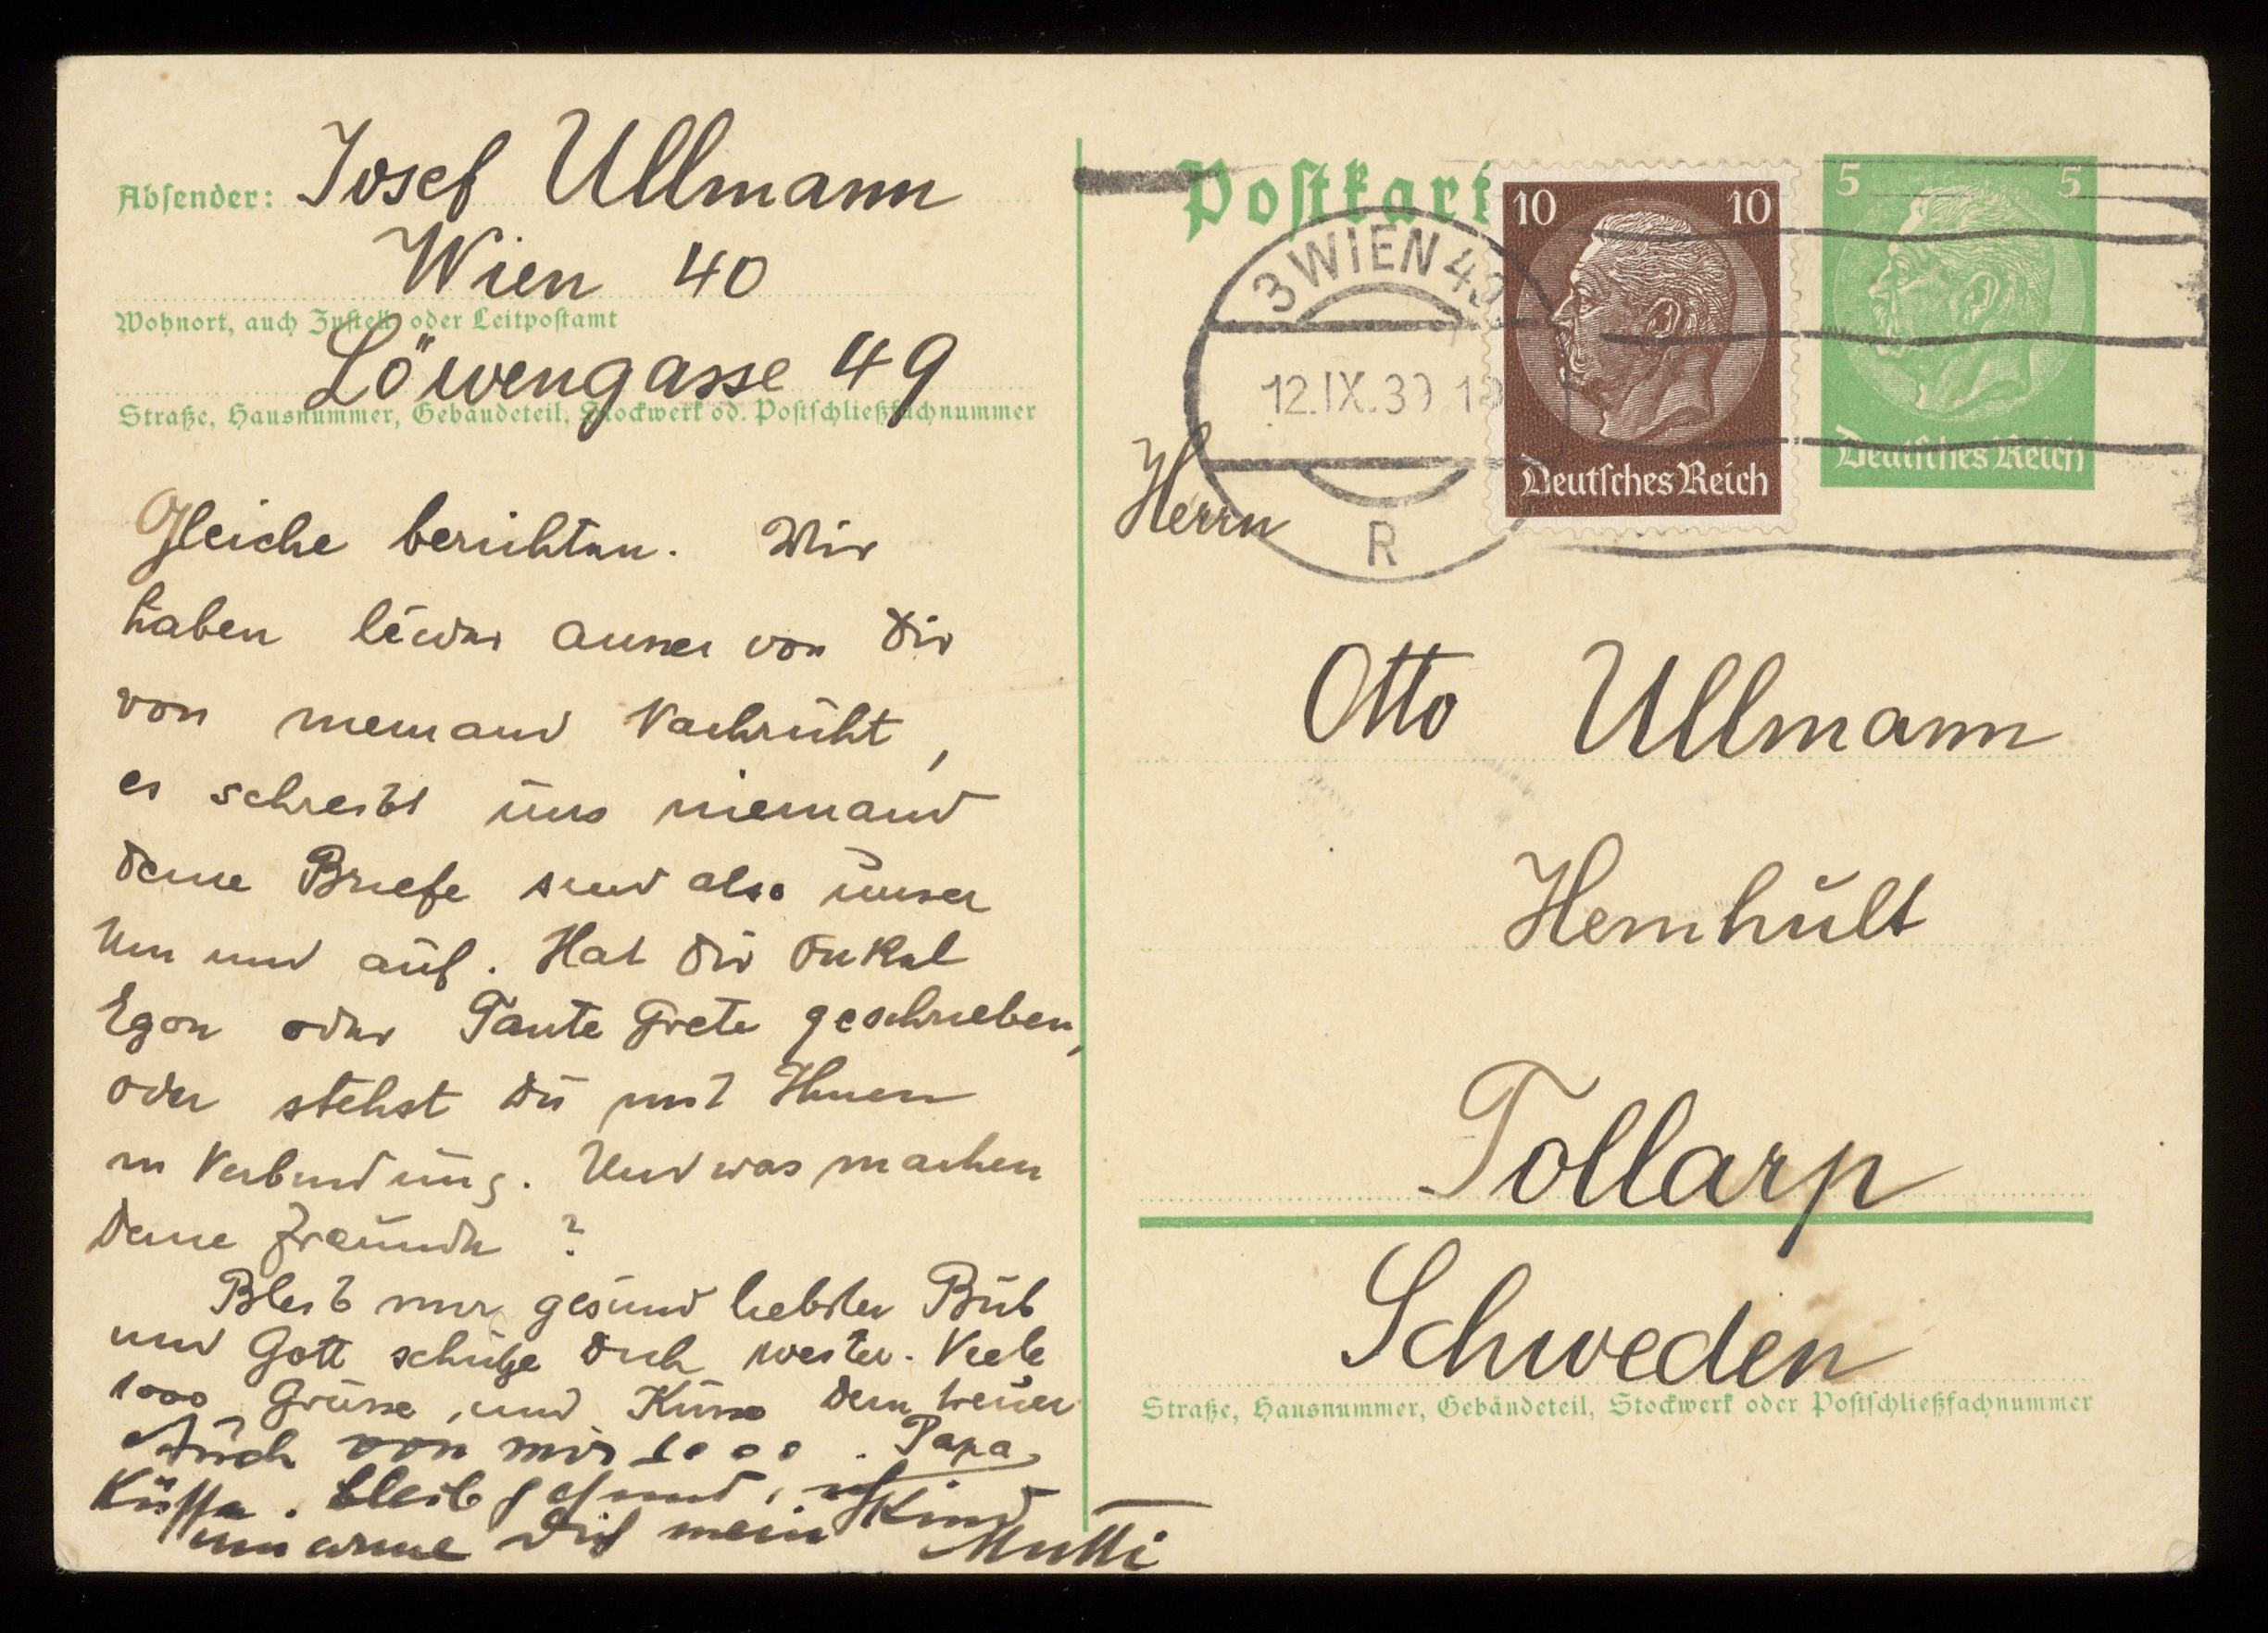 Absender: Josef Ullmann
Wien 40
Wohnort, auch Zustell- oder Leitpostamt
Löwengasse 49
Straße, Hausnummer, Gebäudeteil, Stockwerk od. Postschließfachnummer
Gleiche berichten. Wir
haben leider ausser von Dir
von niemand Nachricht,
es schreibt uns niemand
deine Briefe sind also unser
Um und auf. Hat Dir Onkel
Egon oder Tante Grete geschrieben,
oder stehst Du mit Ihnen
in Verbindung. Und was machen
Deine Freunde ?
Bleib nur gesund liebster Bub
und Gott schütze Dich weiter. Viele
1000 Grüsse und Küsse Dein treuer
Papa
Auch von mir 1000
Küsse. bleib gesund, ich
umarme Dich mein Kind
Mutti
Postkart
3 WIEN 40
12.IX.39
R
10 10
Deutsches Reich
5 5
Deutsches Reich
Herrn
Otto Ullmann
Hemhult
Tollarp
Schweden
Straße, Hausnummer, Gebäudeteil, Stockwerk oder Postschließfachnummer